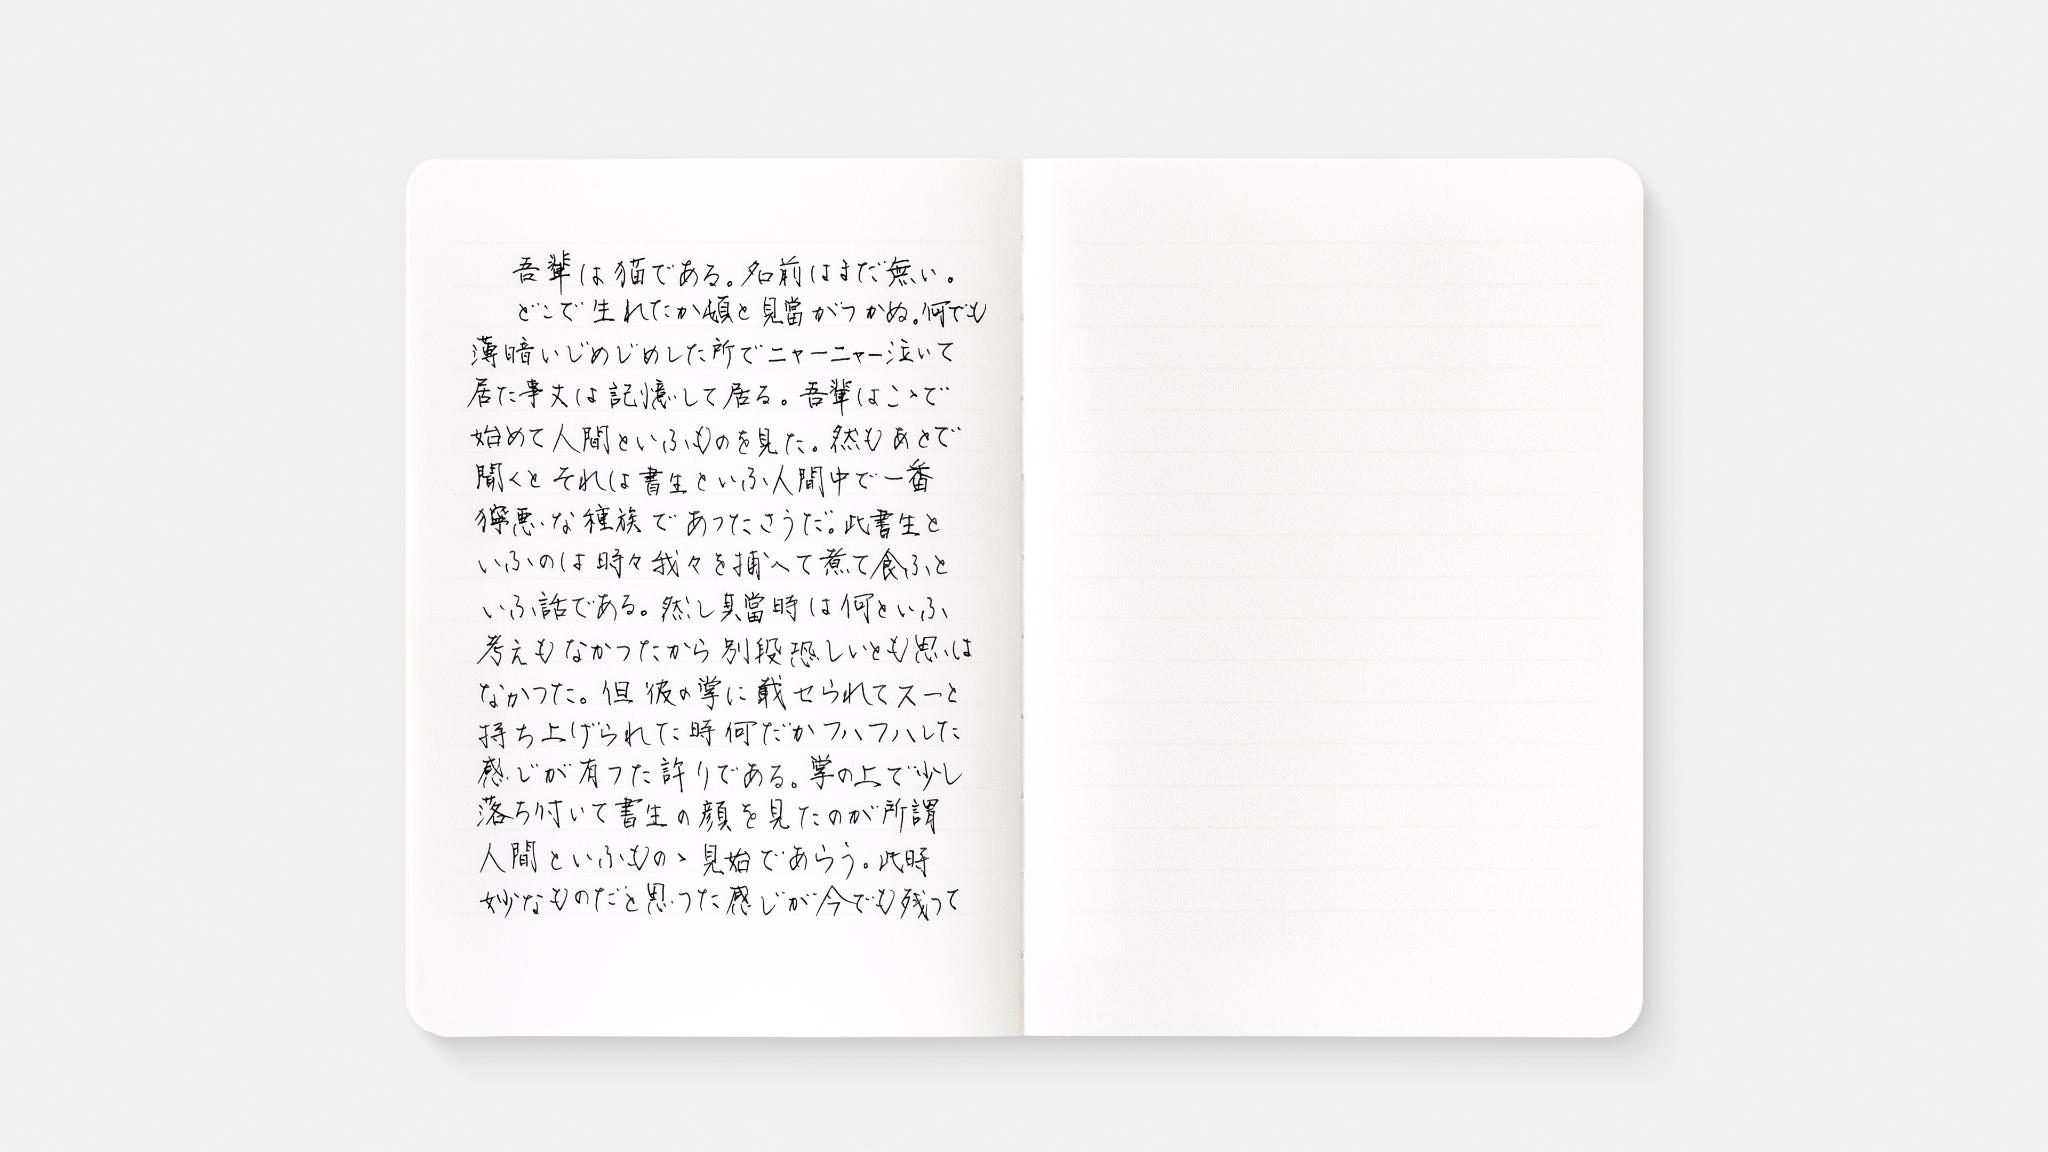 吾輩は猫である。名前はまだ無い。
どこで生れたか頓と見當がつかぬ。何でも
薄暗いじめじめした所でニャーニャー泣いて
居た事丈は記憶して居る。吾輩はこゝで
始めて人間といふものを見た。然もあとで
聞くとそれは書生といふ人間中で一番
獰悪な種族であつたさうだ。此書生と
いふのは時々我々を捕へて煮て食ふと
いふ話である。然し其當時は何といふ
考えもなかつたから別段恐しいとも思は
なかつた。但彼の掌に載せられてスーと
持ち上げられた時何だかフハフハした
感じが有つた許りである。掌の上で少し
落ち付いて書生の顔を見たのが所謂
人間といふものゝ見始であらう。此時
妙なものだと思つた感じが今でも残って